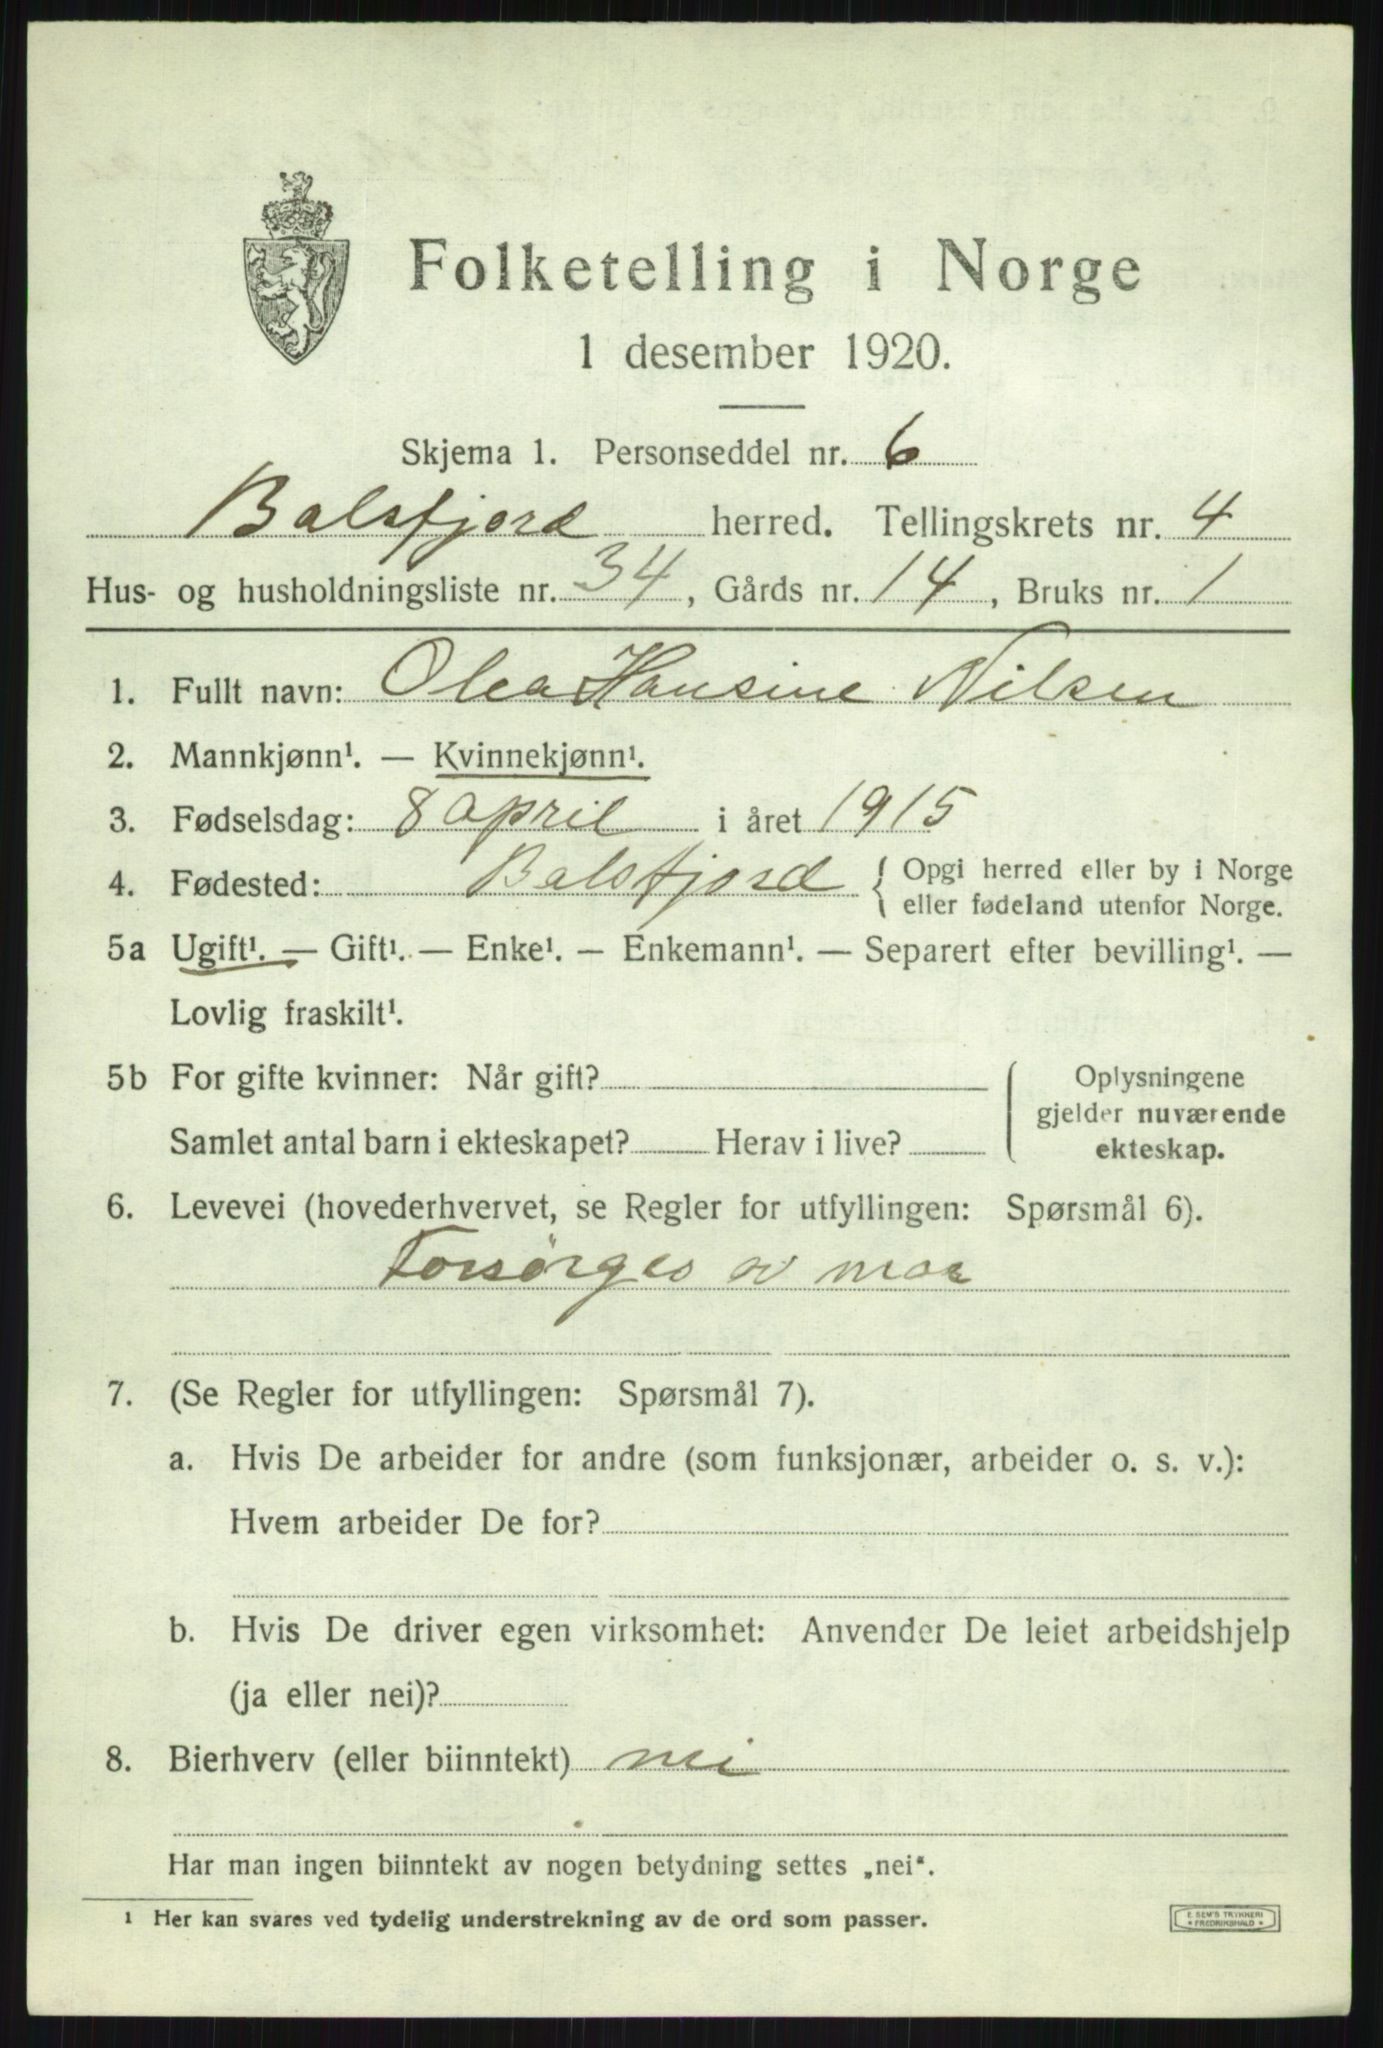 Folketelling i Norge
1 desember 1920.
Skjema 1. Personseddel nr. 6
Balsfjord herred. Tellingskrets nr. 4
Hus- og husholdningsliste nr. 34, Gårds nr. 14, Bruks nr. 1
1. Fullt navn: Olea Hansine Nilsen
2. Mannkjønn¹. — Kvinnekjønn¹.
3. Fødselsdag: 8 april i året 1915
4. Fødested: Balsfjord { Opgi herred eller by i Norge
eller fødeland utenfor Norge.
5a Ugift¹. — Gift¹. — Enke¹. — Enkemann¹. — Separert efter bevilling¹. —
Lovlig fraskilt¹.
5b For gifte kvinner: Når gift?
Samlet antal barn i ekteskapet? Herav i live?
Oplysningene
gjelder nuværende
ekteskap.
6. Levevei (hovederhvervet, se Regler for utfyllingen: Spørsmål 6).
Forsørges av mor
7. (Se Regler for utfyllingen: Spørsmål 7).
a. Hvis De arbeider for andre (som funksjonær, arbeider o. s. v.):
Hvem arbeider De for?
b. Hvis De driver egen virksomhet: Anvender De leiet arbeidshjelp
(ja eller nei)?
8. Bierhverv (eller biinntekt) nei
Har man ingen biinntekt av nogen betydning settes „nei“.
¹ Her kan svares ved tydelig understrekning av de ord som passer.
E. SEM'S TRYKKERI
* FREDRIKSHALD *